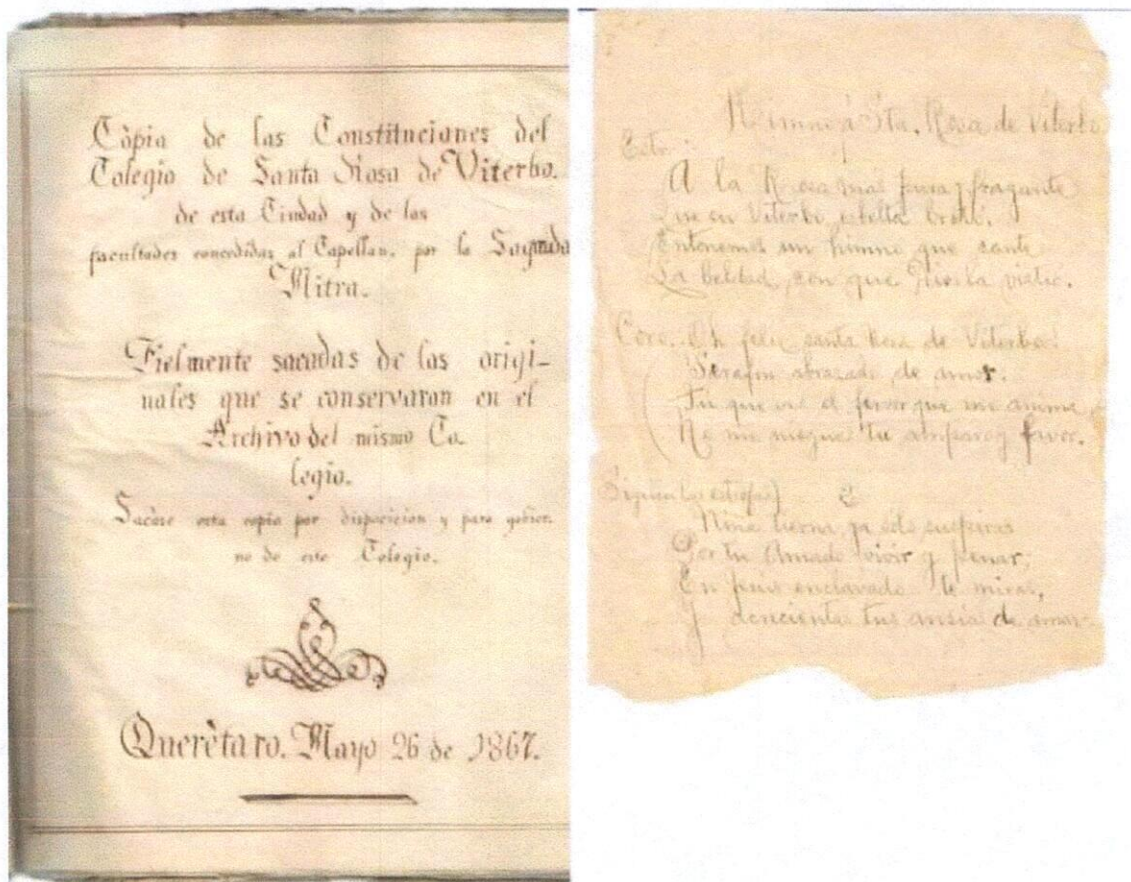 Còpia de las Constituciones del
Colegio de Santa Rosa de Viterbo.
de esta Ciudad y de las
facultades concedidas al Capellan, por la Sagrada
Mitra.
Fielmente sacadas de los origi-
nales que se conservaron en el
Archivo del mismo Co-
legio.
Sacòse esta copia por disposicion y para gobier-
no de este Colegio.
Querètaro. Mayo 26 de 1867.
Himno á Sta. Rosa de Viterbo
Estr.
A la Rosa mas pura y fragante
Que en Viterbo esbelta brotó.
Entonemos un himno que cante
La beldad con que Dios la vistió.
Coro. Oh feliz santa Rosa de Viterbo!
Serafin abrazado de amor.
Tu que ves el fervor que me anima
No me niegues tu amparo y favor.
Siguen las estrofas) 2
Niña tierna ya solo suspiras
Por tu Amado vivir y penar;
En enclavado te miras,
Y tus ansias de amar.